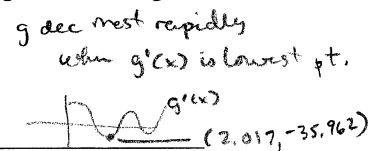 g dec most rapidly
when g'(x) is lowest pt.
g'(x)
(2.017, -35.962)